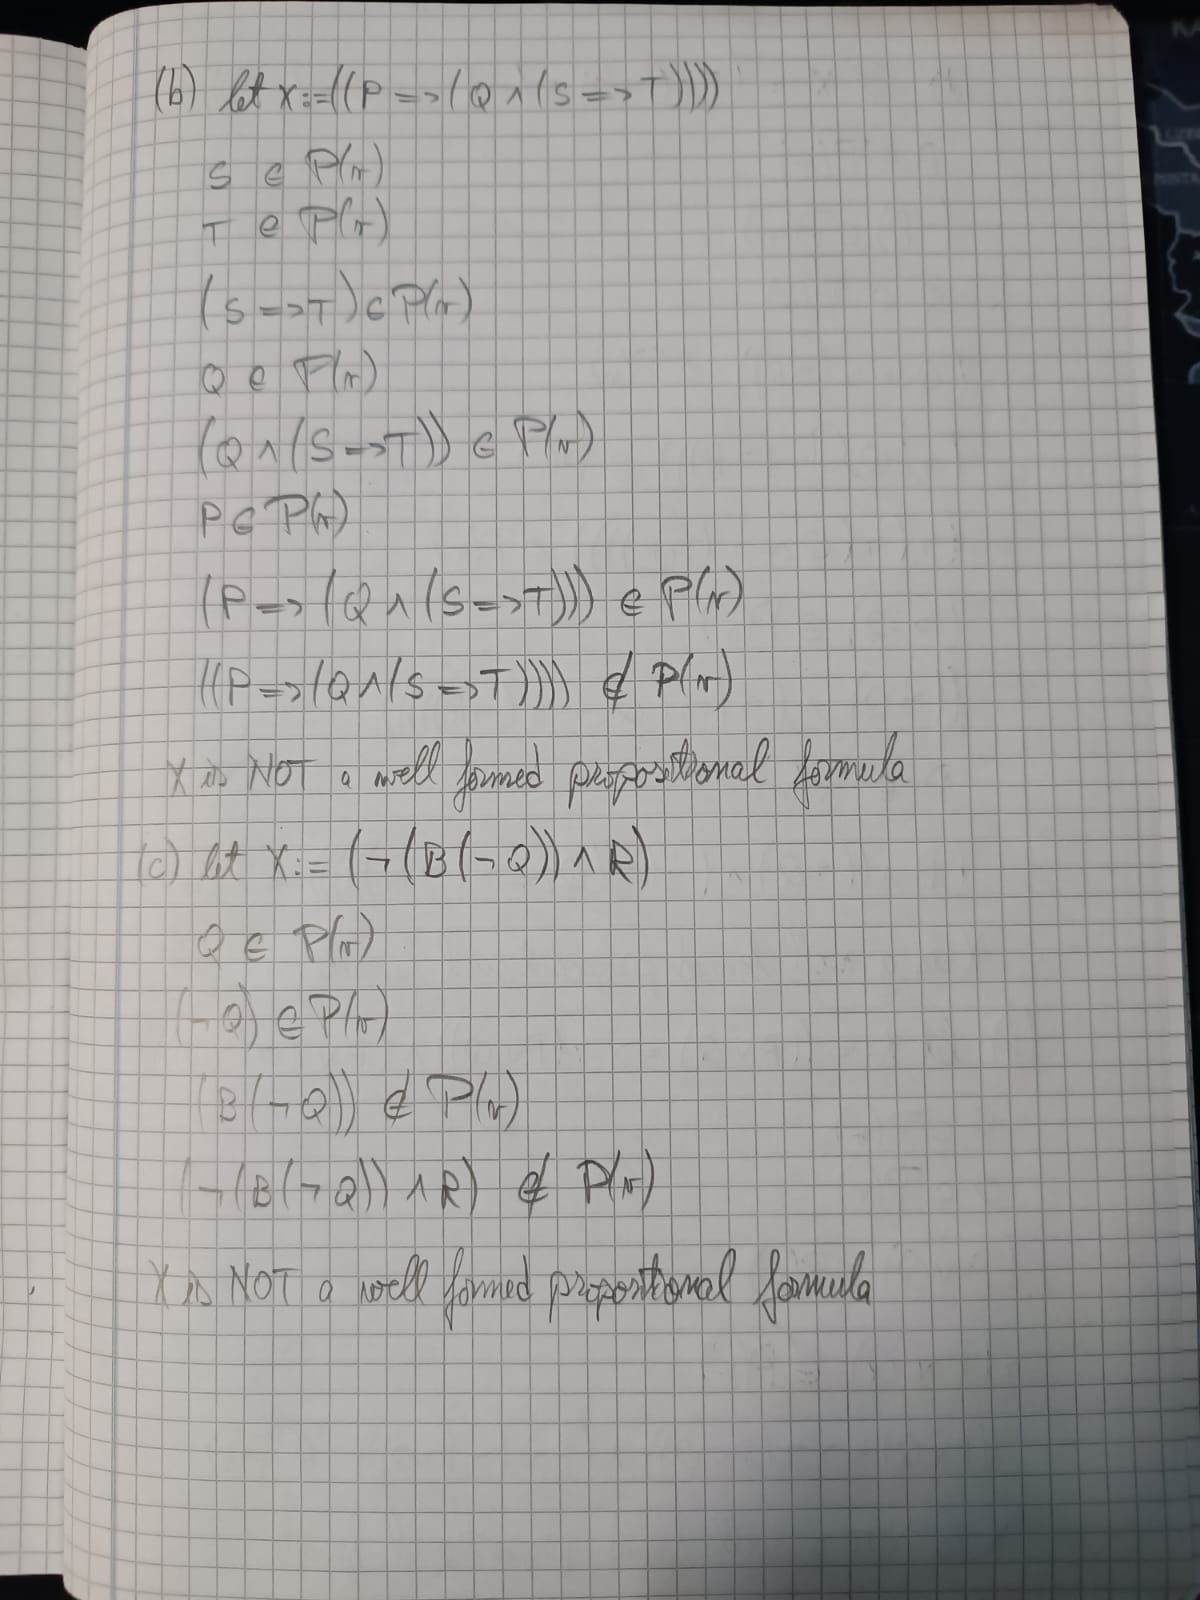 (b) let x:=((P=>(Q∧(S=>T))))
S ∈ P(r)
T ∈ P(r)
(S=>T)∈P(r)
Q ∈ P(r)
(Q∧(S=>T)) ∈ P(r)
P∈P(r)
(P=>(Q∧(S=>T))) ∈ P(r)
((P=>(Q∧(S=>T)))) ∉ P(r)
X is NOT a well formed propositional formula
(c) let X:= (¬(B(¬Q))∧R)
Q ∈ P(r)
(¬Q) ∈ P(r)
(B(¬Q)) ∉ P(r)
(¬(B(¬Q))∧R) ∉ P(r)
X is NOT a well formed propositional formula